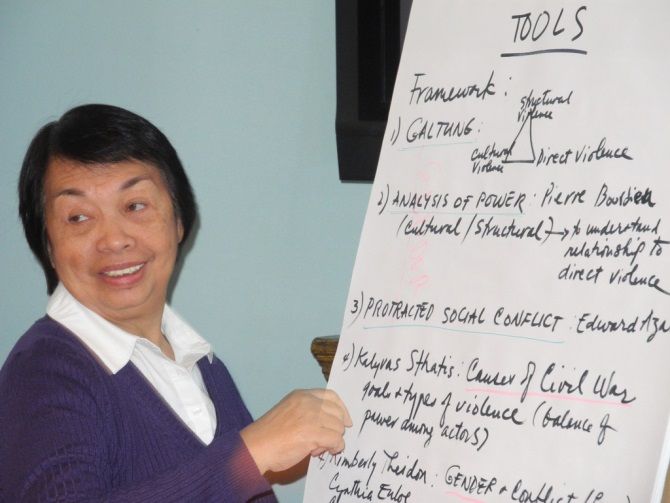 TOOLS
Framework:
1) GALTUNG:
structural
violence
Cultural
violence
Direct Violence
2) ANALYSIS OF POWER: Pierre Bourdieu
(Cultural/Structural) → to understand
relationship to
direct violence
3) PROTRACTED SOCIAL CONFLICT: Edward Aza
4) Kalyvas Stratis: Causes of Civil War
goals + types of violence (balance of
power among actors)
Kimberly Theidon: GENDER + Conflict
Cynthia Enloe